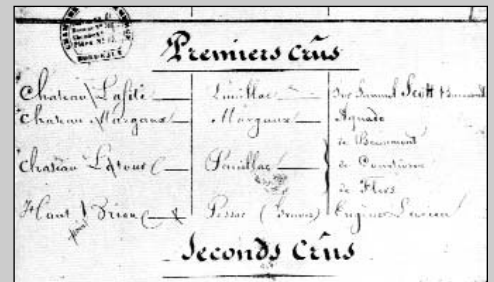 Premiers Crûs
Château Lafite Pauillac Sir Samuel Scott
Château Margaux Margaux Aguado
de Beaumont
Château Latour Pauillac de Courtivron
de Flers
Haut Brion Pessac (Graves) Eugène Larrieu
Seconds Crûs